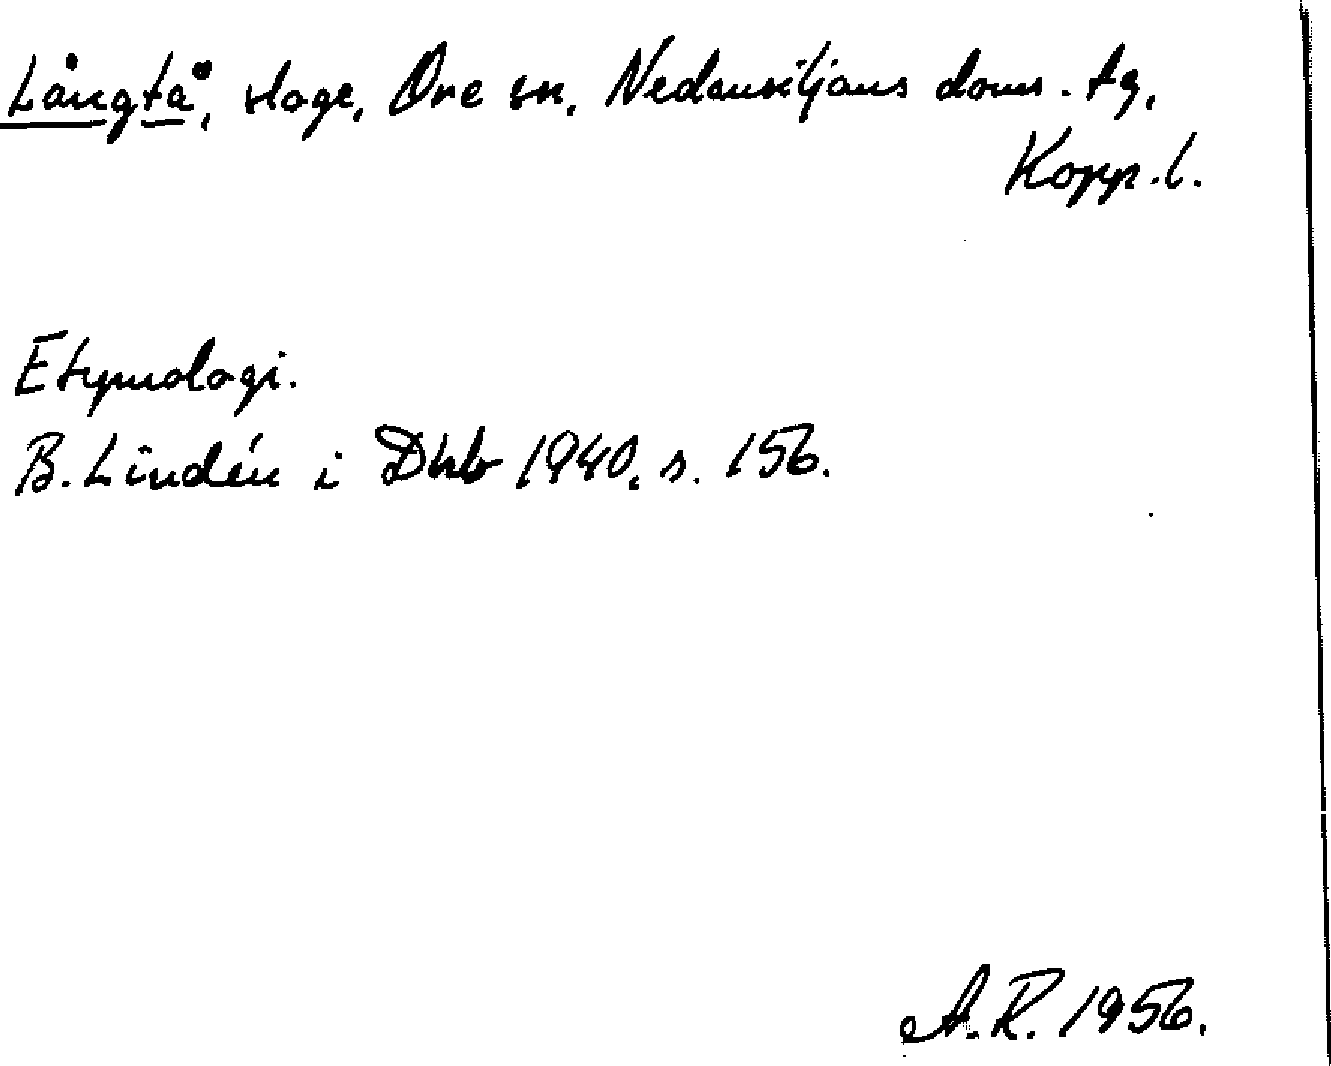 Långtå, sloge, Ore sn, Nedansiljans doms. tg,
Kopp. l.
Etymologi.
B. Lindén i Dhb 1940, s. 156.
A. R. 1956.